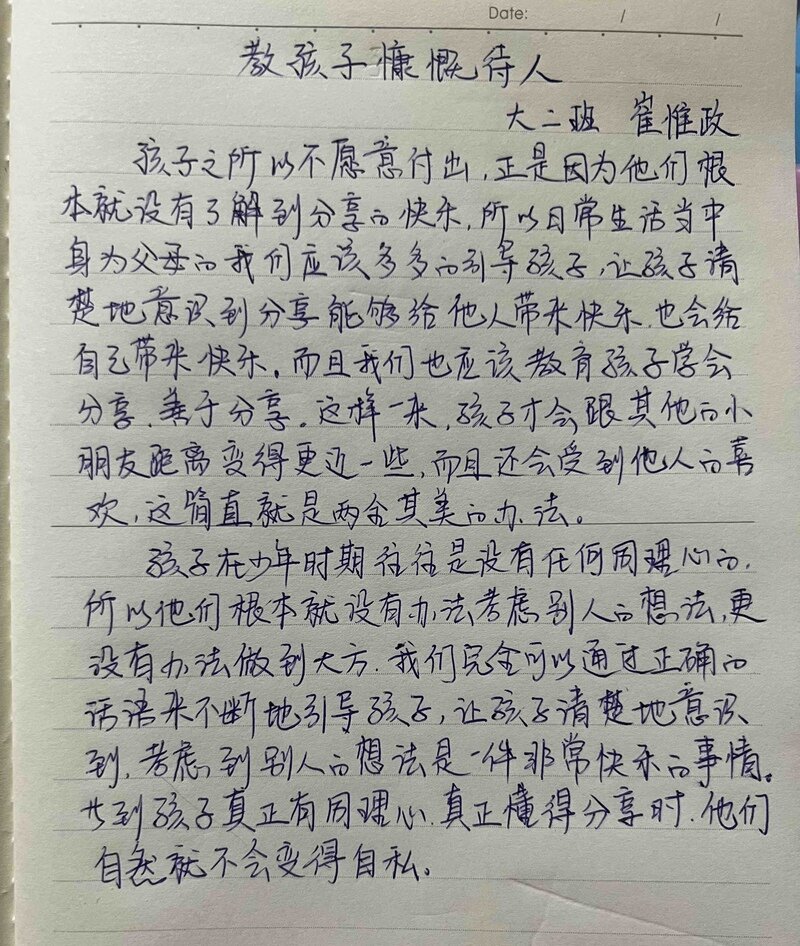 Date: / /
教孩子慷慨待人
大二班 崔惟政
孩子之所以不愿意付出,正是因为他们根
本就没有了解到分享的快乐,所以日常生活当中
身为父母的我们应该多多的引导孩子,让孩子清
楚地意识到分享能够给他人带来快乐.也会给
自己带来快乐。而且我们也应该教育孩子学会
分享.善于分享。这样一来,孩子才会跟其他的小
朋友距离变得更近一些,而且还会受到他人的喜
欢,这简直就是两全其美的办法。
孩子在少年时期往往是没有任何同理心的.
所以他们根本就没有办法考虑别人的想法,更
没有办法做到大方.我们完全可以通过正确的
话语来不断地引导孩子,让孩子清楚地意识
到,考虑到别人的想法是一件非常快乐的事情。
到孩子真正有同理心.真正懂得分享时.他们
自然就不会变得自私。